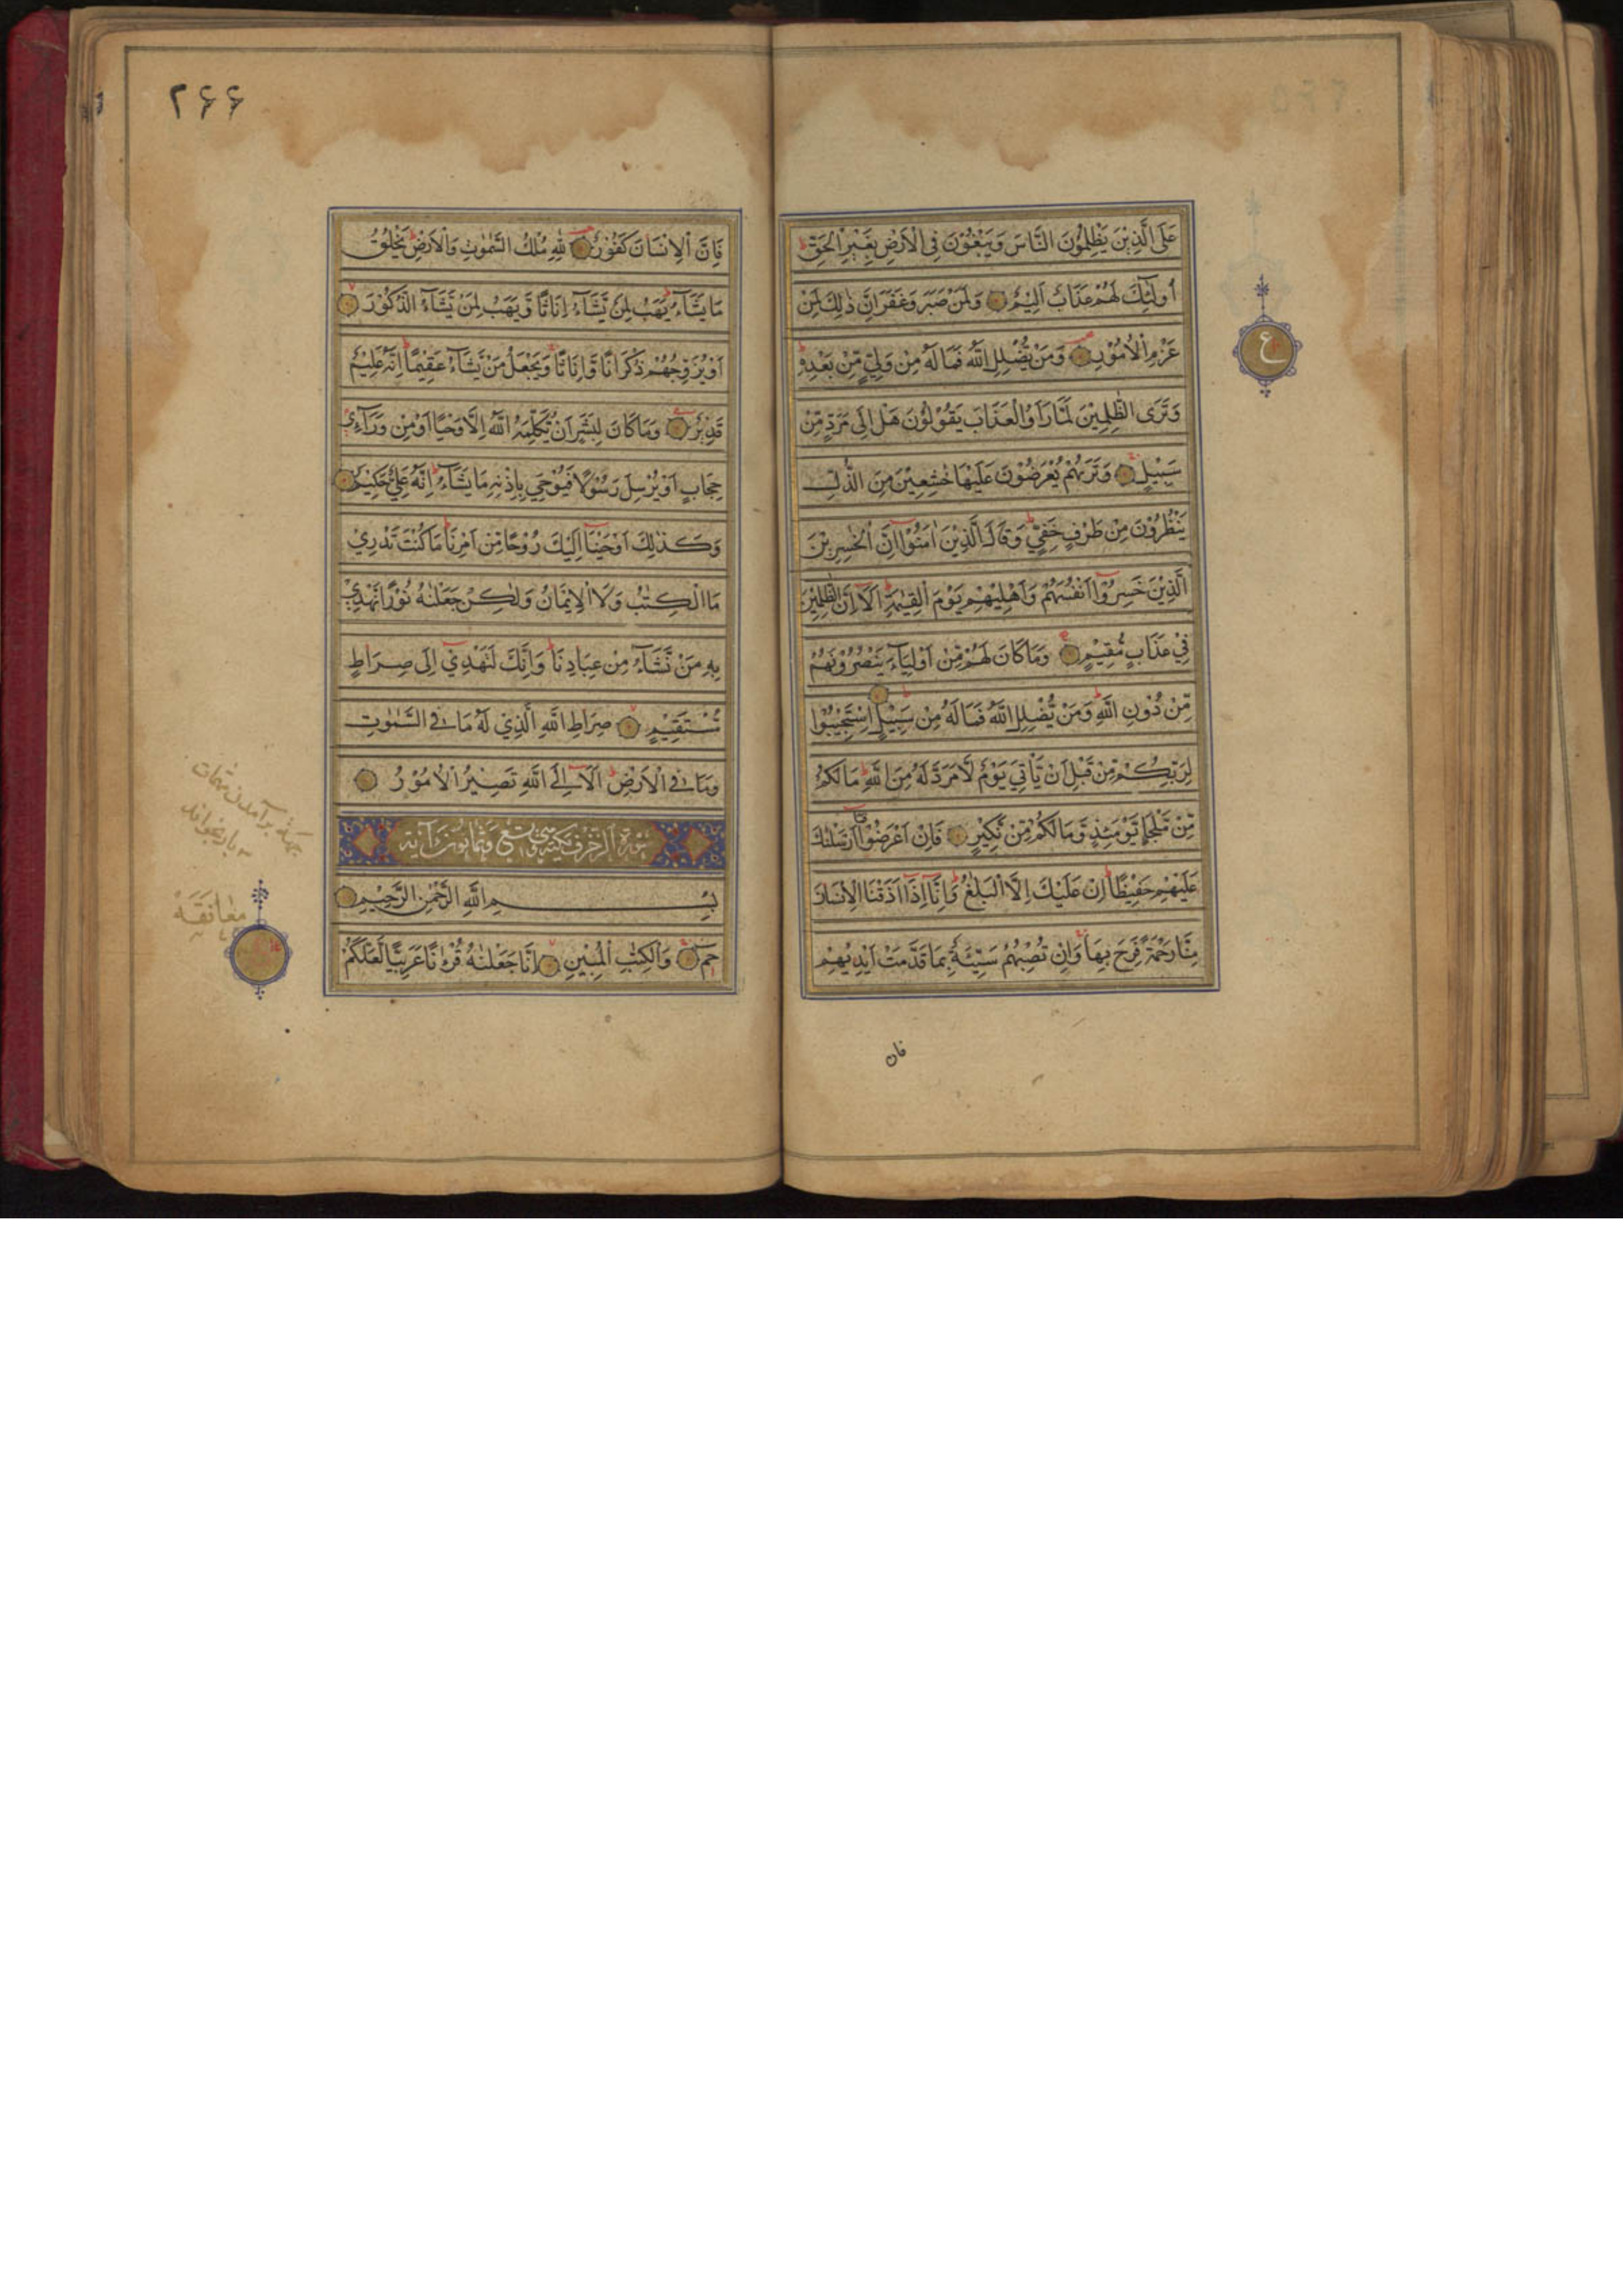 عَلَى الَّذِيْنَ يَظْلِمُوْنَ النَّاسَ وَيَبْغُوْنَ فِي الْاَرْضِ بِغَيْرِ الْحَقِّ ط
اُولٰٓئِكَ لَهُمْ عَذَابٌ اَلِيْمٌ وَلَمَنْ صَبَرَ وَغَفَرَ اِنَّ ذٰلِكَ لَمِنْ
عَزْمِ الْاُمُوْرِ وَمَنْ يُّضْلِلِ اللّٰهُ فَمَا لَهٗ مِنْ وَلِيٍّ مِّنْ بَعْدِهٖ ط
وَتَرَى الظّٰلِمِيْنَ لَمَّا رَاَوُا الْعَذَابَ يَقُوْلُوْنَ هَلْ اِلٰى مَرَدٍّ مِّنْ
سَبِيْلٍ وَتَرٰىهُمْ يُعْرَضُوْنَ عَلَيْهَا خٰشِعِيْنَ مِنَ الذُّلِّ
يَنْظُرُوْنَ مِنْ طَرْفٍ خَفِيٍّ ط وَقَالَ الَّذِيْنَ اٰمَنُوْٓا اِنَّ الْخٰسِرِيْنَ
الَّذِيْنَ خَسِرُوْٓا اَنْفُسَهُمْ وَاَهْلِيْهِمْ يَوْمَ الْقِيٰمَةِ ط اَلَآ اِنَّ الظّٰلِمِيْنَ
فِيْ عَذَابٍ مُّقِيْمٍ وَمَا كَانَ لَهُمْ مِّنْ اَوْلِيَآءَ يَنْصُرُوْنَهُمْ
مِّنْ دُوْنِ اللّٰهِ ط وَمَنْ يُّضْلِلِ اللّٰهُ فَمَا لَهٗ مِنْ سَبِيْلٍ ط اِسْتَجِيْبُوْا
لِرَبِّكُمْ مِّنْ قَبْلِ اَنْ يَّاْتِيَ يَوْمٌ لَّا مَرَدَّ لَهٗ مِنَ اللّٰهِ ط مَا لَكُمْ
مِّنْ مَّلْجَاٍ يَّوْمَئِذٍ وَّمَا لَكُمْ مِّنْ نَّكِيْرٍ فَاِنْ اَعْرَضُوْا فَمَآ اَرْسَلْنٰكَ
عَلَيْهِمْ حَفِيْظًا ط اِنْ عَلَيْكَ اِلَّا الْبَلٰغُ ط وَاِنَّآ اِذَآ اَذَقْنَا الْاِنْسَانَ
مِنَّا رَحْمَةً فَرِحَ بِهَا ج وَاِنْ تُصِبْهُمْ سَيِّئَةٌ بِمَا قَدَّمَتْ اَيْدِيْهِمْ
فان
ع
۲۶۶
فَاِنَّ الْاِنْسَانَ كَفُوْرٌ لِلّٰهِ مُلْكُ السَّمٰوٰتِ وَالْاَرْضِ ط يَخْلُقُ
مَا يَشَآءُ ط يَهَبُ لِمَنْ يَّشَآءُ اِنَاثًا وَّيَهَبُ لِمَنْ يَّشَآءُ الذُّكُوْرَ
اَوْ يُزَوِّجُهُمْ ذُكْرَانًا وَّاِنَاثًا ج وَيَجْعَلُ مَنْ يَّشَآءُ عَقِيْمًا ط اِنَّهٗ عَلِيْمٌ
قَدِيْرٌ وَمَا كَانَ لِبَشَرٍ اَنْ يُّكَلِّمَهُ اللّٰهُ اِلَّا وَحْيًا اَوْ مِنْ وَّرَآئِ
حِجَابٍ اَوْ يُرْسِلَ رَسُوْلًا فَيُوْحِيَ بِاِذْنِهٖ مَا يَشَآءُ ط اِنَّهٗ عَلِيٌّ حَكِيْمٌ
وَكَذٰلِكَ اَوْحَيْنَآ اِلَيْكَ رُوْحًا مِّنْ اَمْرِنَا ط مَا كُنْتَ تَدْرِيْ
مَا الْكِتٰبُ وَلَا الْاِيْمَانُ وَلٰكِنْ جَعَلْنٰهُ نُوْرًا نَّهْدِيْ
بِهٖ مَنْ نَّشَآءُ مِنْ عِبَادِنَا ط وَاِنَّكَ لَتَهْدِيْٓ اِلٰى صِرَاطٍ
مُّسْتَقِيْمٍ صِرَاطِ اللّٰهِ الَّذِيْ لَهٗ مَا فِي السَّمٰوٰتِ
وَمَا فِي الْاَرْضِ ط اَلَآ اِلَى اللّٰهِ تَصِيْرُ الْاُمُوْرُ
سورة الزخرف مكية وهي تسع وثمانون آية
بِسْمِ اللّٰهِ الرَّحْمٰنِ الرَّحِيْمِ
حٰمٓ وَالْكِتٰبِ الْمُبِيْنِ اِنَّا جَعَلْنٰهُ قُرْءٰنًا عَرَبِيًّا لَّعَلَّكُمْ
جهة برآمدن مهمات
بار بخواند
معانقة